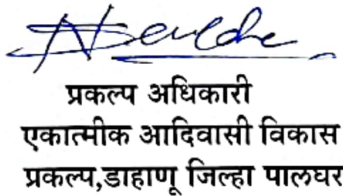 प्रकल्प अधिकारी
एकात्मीक आदिवासी विकास
प्रकल्प,डाहाणू जिल्हा पालघर